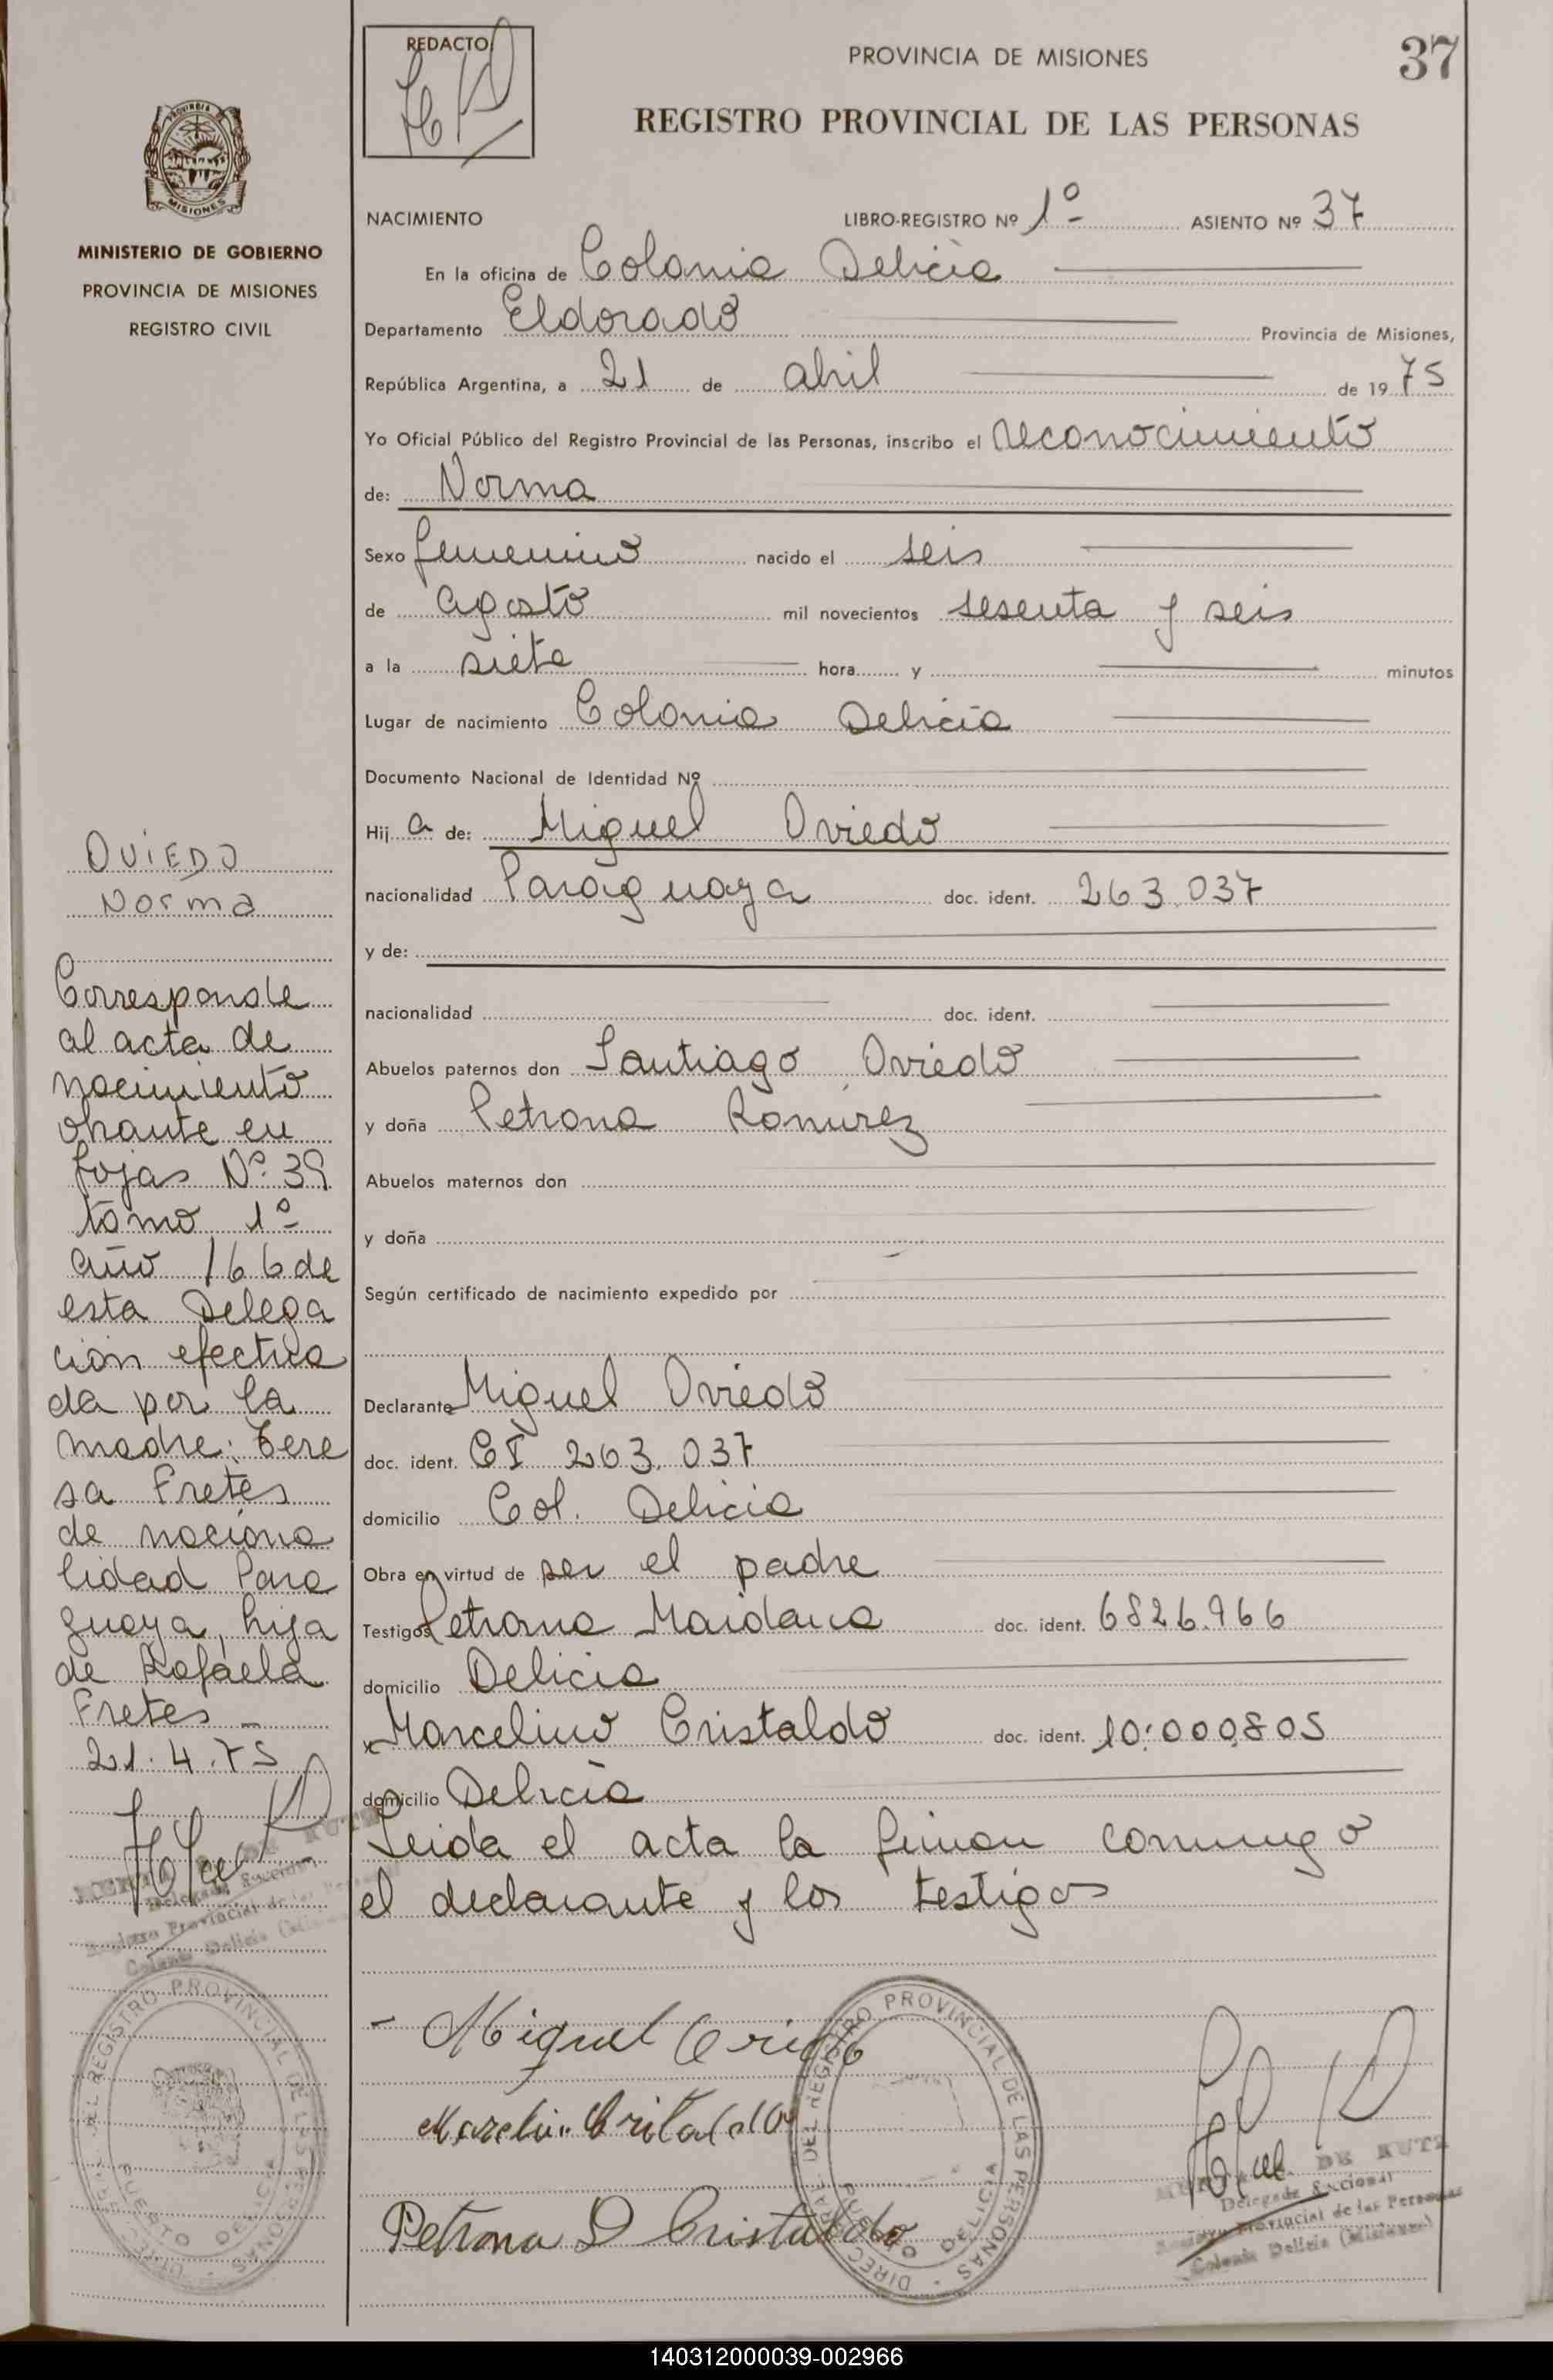 REDACTO
PROVINCIA DE MISIONES
37
REGISTRO PROVINCIAL DE LAS PERSONAS
MISIONES
MINISTERIO DE GOBIERNO
PROVINCIA DE MISIONES
REGISTRO CIVIL
NACIMIENTO LIBRO-REGISTRO Nº 1º ASIENTO Nº 37
En la oficina de Colonia Delicia
Departamento Eldorado Provincia de Misiones,
República Argentina, a 21 de abril de 1975
Yo Oficial Público del Registro Provincial de las Personas, inscribo el reconocimiento
de: Norma
Sexo femenino nacido el seis
de agosto mil novecientos sesenta y seis
a la siete hora y minutos
Lugar de nacimiento Colonia Delicia
Documento Nacional de Identidad Nº
Hija de: Miguel Oviedo
nacionalidad Paraguaya doc. ident. 263.037
y de:
nacionalidad doc. ident.
Abuelos paternos don Santiago Oviedo
y doña Petrona Ramirez
Abuelos maternos don
y doña
Según certificado de nacimiento expedido por
Declarante Miguel Oviedo
doc. ident. CI 263.037
domicilio Col. Delicia
Obra en virtud de ser el padre
Testigos Petrona Maidana doc. ident. 6826.966
domicilio Delicia
Marcelino Cristaldo doc. ident. 10.000.805
domicilio Delicia
Leida el acta la firman conmigo
el declarante y los testigos
OVIEDO
Norma
Corresponde
al acta de
nacimiento
obrante en
fojas Nº 39
tomo 1º
año 166 de
esta Delega
ción efectua
da por la
madre: Tere
sa Fretes
de naciona
lidad Para
guaya, hija
de Rafaela
Fretes
21.4.75
DE KUTZ
Registro Provincial de las
Colonia Delicia
REGISTRO PROVINCIAL DE LAS PERSONAS
PUERTO DELICIA
Miguel Oviedo
Petrona D Cristaldo
DIREC. GRAL. DEL REGISTRO PROVINCIAL DE LAS PERSONAS
PUERTO DELICIA
DE KUTZ
Delegada Seccional
Registro Provincial de las Personas
Colonia Delicia (Misiones)
140312000039-002966